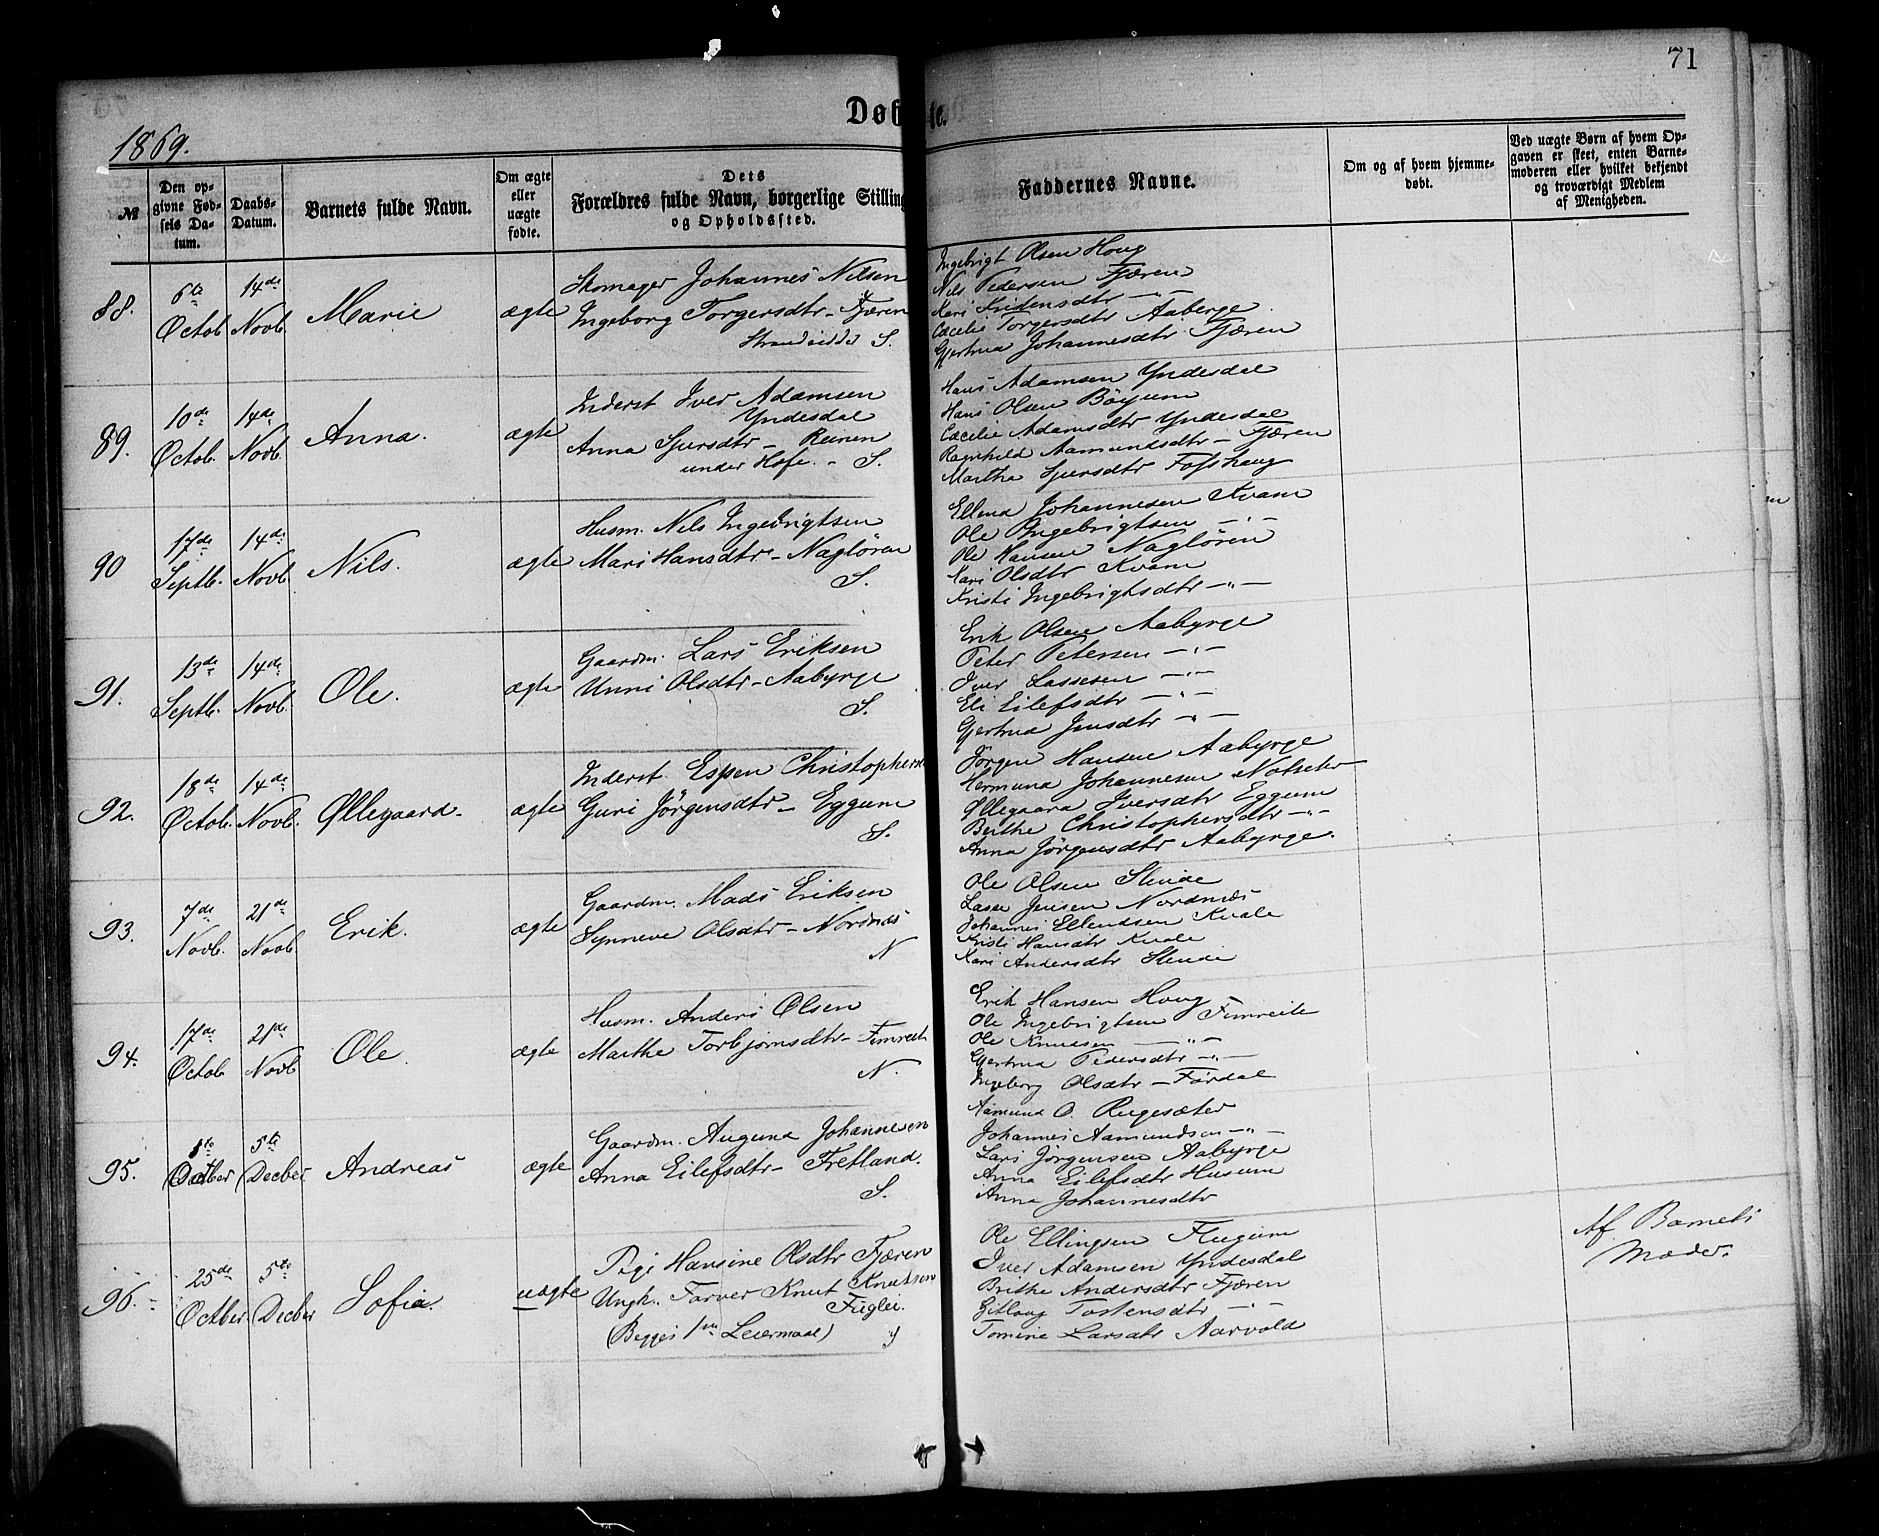 71
Døbte.
1869.
№
Den opgivne Fødsels Datum.
Daabs-Datum.
Barnets fulde Navn.
Om ægte eller uægte fødte.
Dets Forældres fulde Navn, borgerlige Stilling og Opholdssted.
Faddernes Navne.
Om og af hvem hjemmedøbt.
Ved uægte Børn af hvem Opgaven er skeet, enten Barnemoderen eller hvilket bekjendt og troværdigt Medlem af Menigheden.
88. 6te Octob. 14de Novb. Marie ægte
Skomager Johannes Nilsen
Ingeborg Torgersdtr - Fjæren
S.
Ingebrigt Olsen Houg
Nils Pedersen Fjæren
Kari -"-
Cæcilie Torgersdtr Aaberge
Gjertrud Johannesdtr Fjæren
89. 10de Octob. 14de Novb. Anna. ægte
Inderst Iver Adamsen
Yndesdal
Anna Sjursdtr - Reinen
under Hofe. - S.
Hans Adamsen Yndesdal
Hans Olsen Böyum
Cæcilie Adamsdtr Yndesdal
Ragnhild Aamundsdtr - Fjæren
Martha Sjursdtr Fosshaug
90 17de Septb. 14de Novb. Nils. ægte
Husm. Nils Ingebrigtsen
Mari Hansdtr - Naglören
S.
Ellend Johannesen Kvam
Ole Ingebrigtsen -"-
Ole Hansen Naglören
Kari Olsdtr Kvam
Kristi Ingebrigtsdtr -"-
91. 13de Septb. 14de Novb. Ole. ægte
Gaardm. Lars Eriksen
Unni Olsdtr - Aabyrge
S.
Erik Olsen Aabyrge
Peter Petersen -"-
Iver Lassesen -"-
Eli Eilefsdtr -"-
Gjertrud Jensdtr -"-
92. 18de Octob. 14de Novb. Øllegaard. ægte
Inderst. Espen Christophersen
Guri Jörgensdtr - Eggum
S.
Jörgen Hansen Aabyrge
Hermund Johannesen Notseter
Øllegaard Iversdtr Eggum
Berthe Christophersdtr -"-
Anna Jörgensdtr Aabyrge.
93. 7de Novb. 21de Novb. Erik. ægte
Gaardm. Mads Eriksen
Synneve Olsdtr - Nordnæs
N
Ole Olsen Slinde
Lasse Jensen Nordnæs
Johannes Ellendsen Kvale
Kristi Hansdtr Kvale
Kari Andersdtr Slinde
94. 17de Octob. 21de Novb. Ole. ægte
Husm. Anders Olsen
Marthe Torbjörnsdtr - Fimreite
N.
Erik Hansen Houg
Ole Ingebrigtsen Fimreite
Ole Knudsen -"-
Gjertrud Pedersdtr -"-
Ingeborg Olsdtr - Fardal
95. 1te 5te Decber Andreas ægte
Gaardm. Augund Johannesen
Anna Eilefsdtr - Fretland.
S.
Aamund O. Rugesæter
Johannes Aamundsen -"-
Lars Jörgensen Aabyrge
Anna Eilefsdtr Husum
Anna Johannesdtr
96. 25de Octber. 5te Decber Sofia. uægte
Pige Hansine Olsdtr Fjæren
Ungk. Farver Knut Knutsen
Fuglei.
(Begges 1ste Leiermaal)
Ole Ellingsen Flugum
Iver Adamsen Yndesdal
Brithe Andersdtr Fjæren
Gitlaug Tostensdtr -"-
Tomine Larsdtr Aarvold
Af Barnets
Moder.